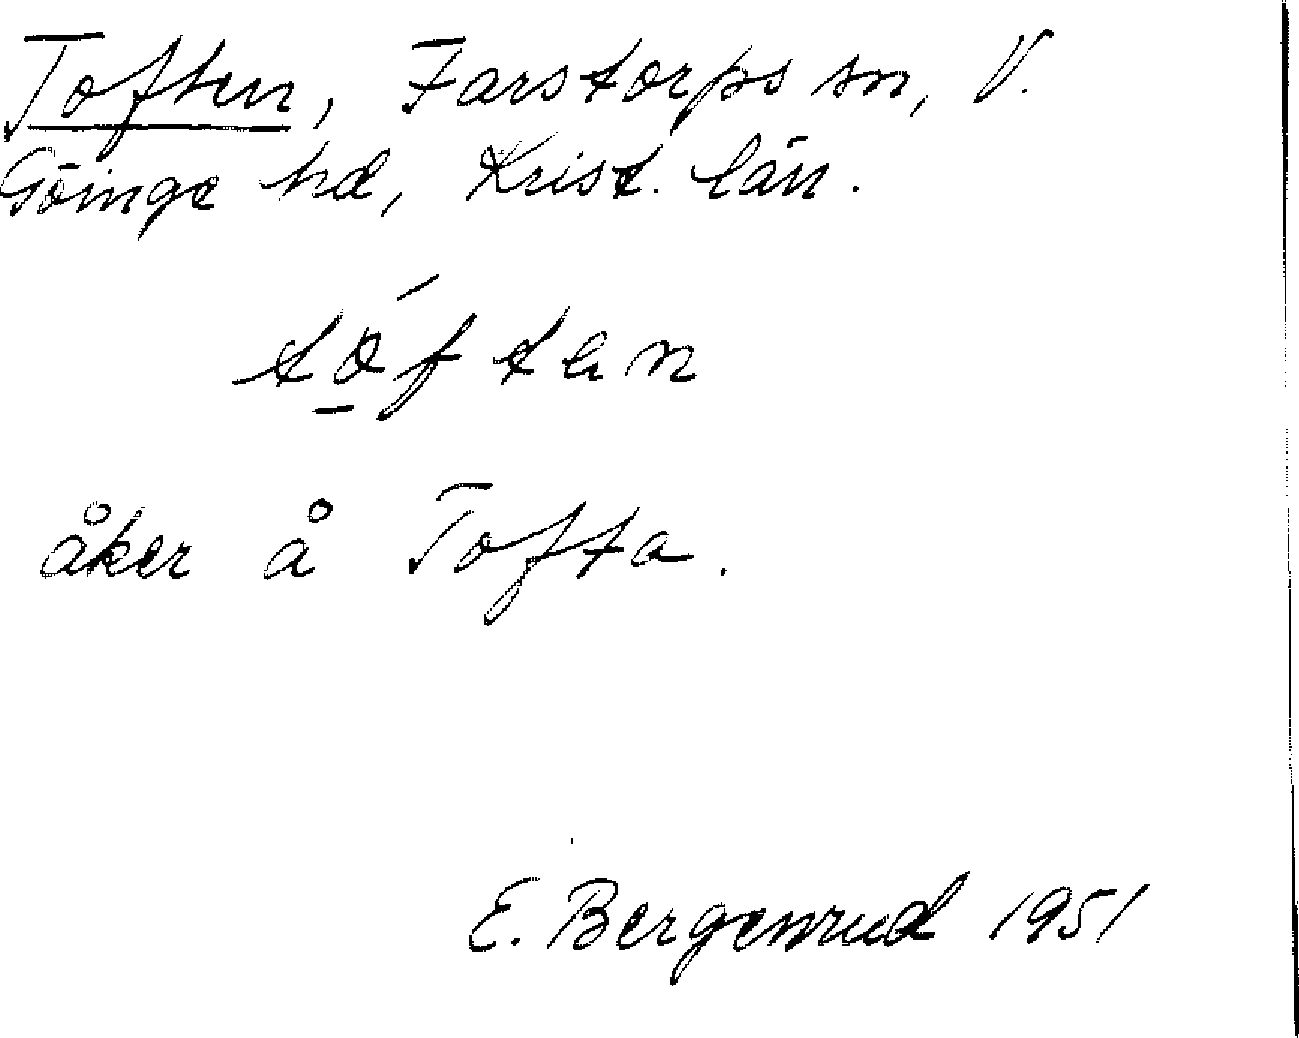 Toften, Farstorps sn, V.
Göinge hd, Krist. län.
tó̠ften
åker å Tofta.
E. Bergenrud 1951